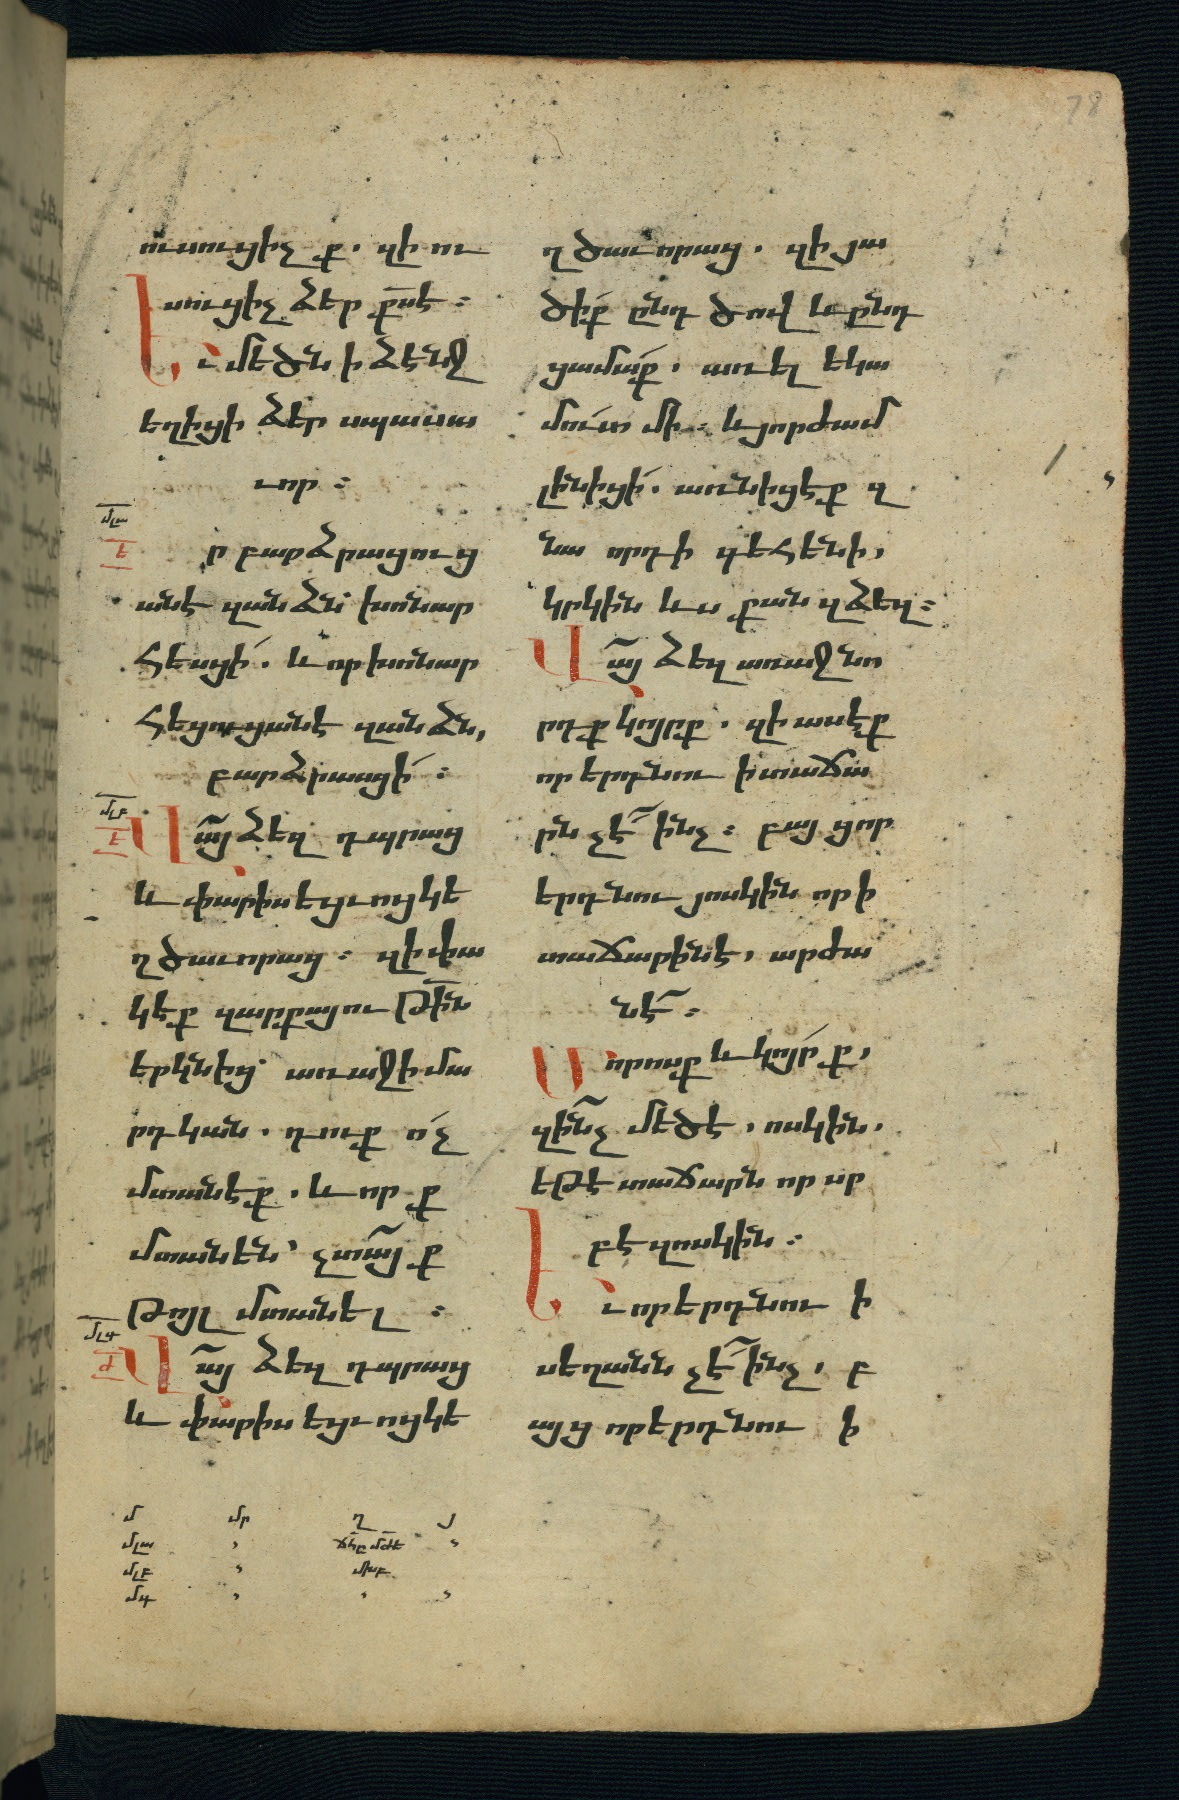 78
ուսուցիչք. զի ու
սուցիչ ձեր քս է։
Եւ մեծն ի ձէնջ
եղիցի ձեր սպասա
ւոր։
մլա
է
ր բարձրացուց
անէ զանձն՝ խոնար
հեսցի. և որ խոնար
հեցուցանէ զանձն,
բարձրասցի։
մլբ
է
Վայ ձեզ դպրաց
և փարիսեցւոց կե
ղծաւորաց։ զի փա
կէք զարքայութին
երկնից՝ առաջի մա
րդկան. դուք ոչ
մտանէք. և որք
մտանեն՝ չտայք
թոյլ մտանել։
մլգ
ժ
Վայ ձեզ դպրաց
և փարիսեցւոց կե
ղծաւորաց. զի յա
ծիք ընդ ծով և ընդ
ցամաք. առել եկա
մուտ մի։ և յորժամ
լինիցի. առնիցէք զ
նա որդի գեհենի,
կրկին ևս քան զձեզ։
Վայ ձեզ առաջնո
րդք կոյրք. զի ասէք
որ երդնու ի տաճա
րն չէ ինչ։ բայց որ
երդնու յոսկին որ ի
տաճարին է, արժա
նէ։
Մորոսք և կոյրք,
զինչ մեծ է, ոսկին,
եթէ տաճարն որ սր
բէ զոսկին։
Եւ որ երդնու ի
սեղանն չէ ինչ, բ
այց որ երդնու ի
մ մր ղ յ
մլա
մլբ
մգ